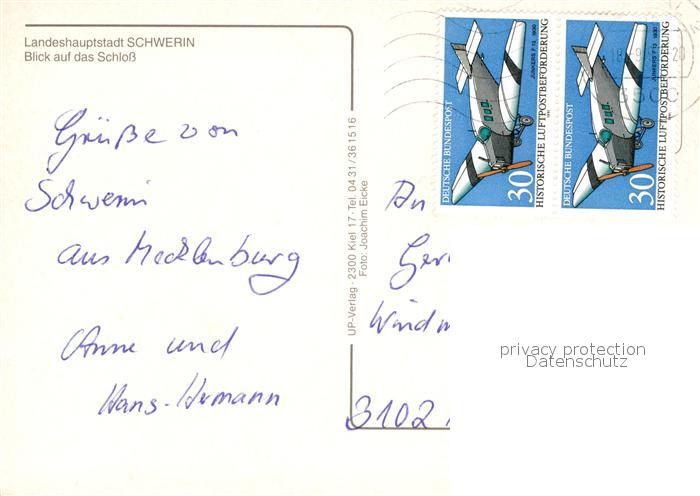 Landeshauptstadt SCHWERIN
Blick auf das Schloß
Grüße von
Schwerin
aus Mecklenburg
Anne und
Hans-Hermann
UP-Verlag · 2300 Kiel 17 · Tel. 0431/361516
Foto: Joachim Eicke
An
Windm
3102
DEUTSCHE BUNDESPOST
30
HISTORISCHE LUFTPOSTBEFÖRDERUNG
JUNKERS F 13 1930
1991
DEUTSCHE BUNDESPOST
30
HISTORISCHE LUFTPOSTBEFÖRDERUNG
JUNKERS F 13 1930
privacy protection
Datenschutz